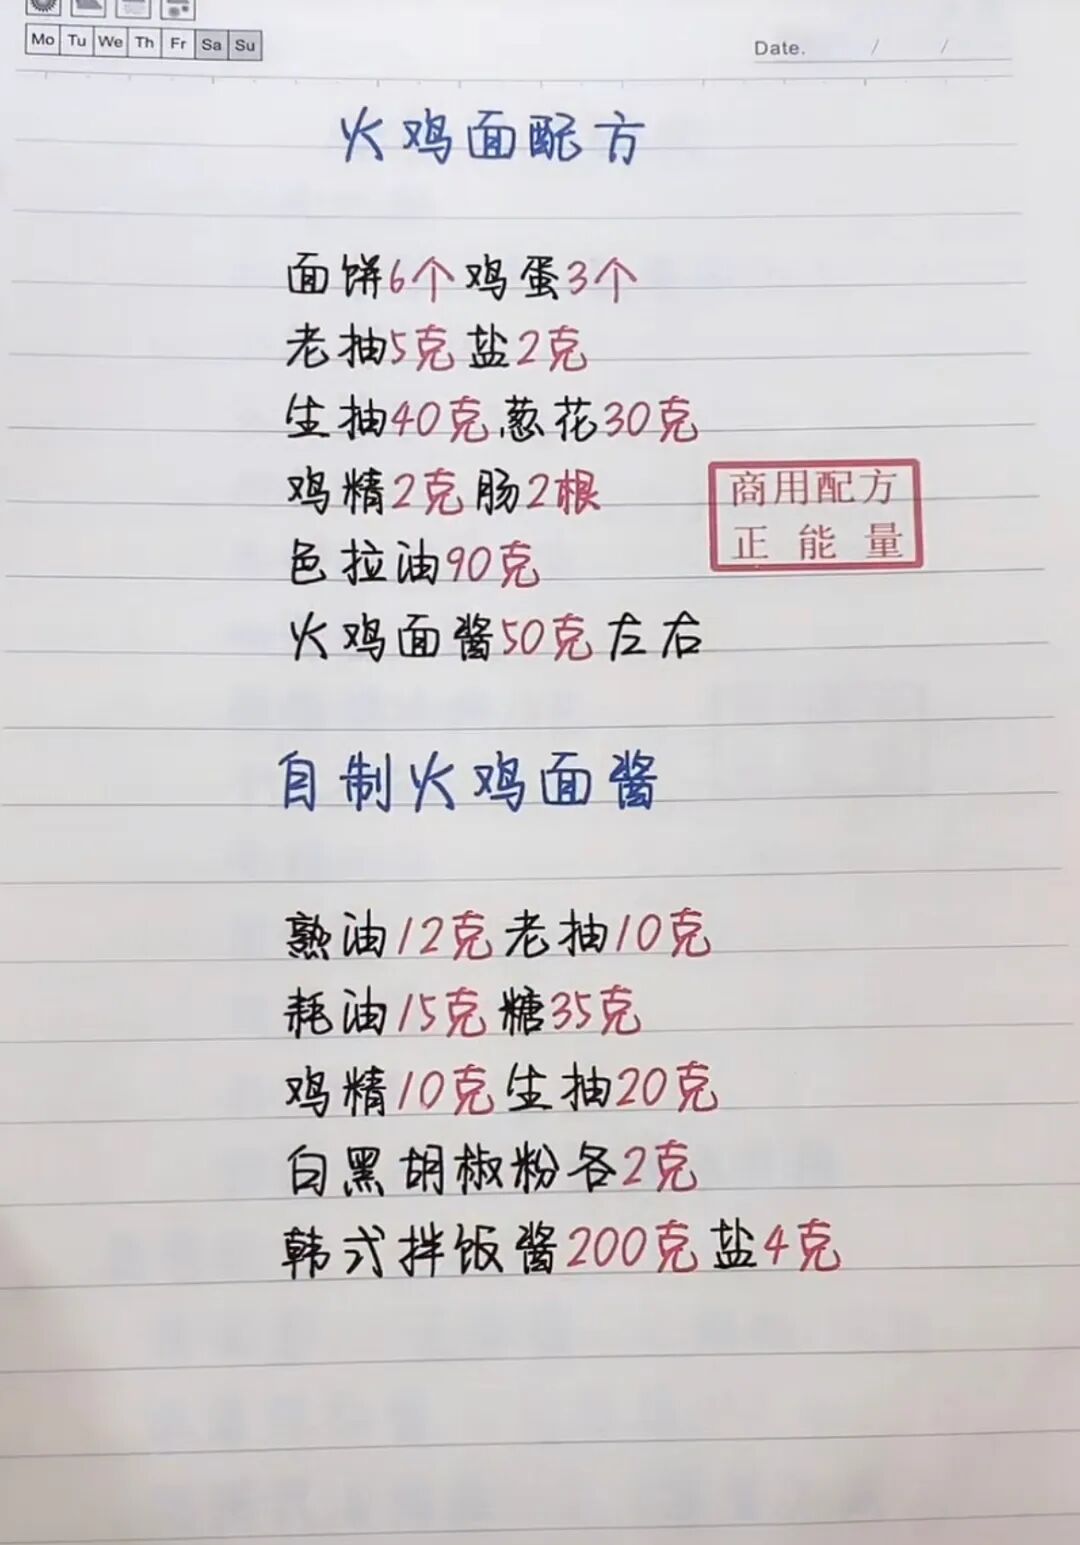 Mo Tu We Th Fr Sa Su
Date. / /
火鸡面配方
面饼6个鸡蛋3个
老抽5克盐2克
生抽40克葱花30克
鸡精2克肠2根
色拉油90克
火鸡面酱50克左右
商用配方
正能量
自制火鸡面酱
熟油12克老抽10克
耗油15克糖35克
鸡精10克生抽20克
白黑胡椒粉各2克
韩式拌饭酱200克盐4克